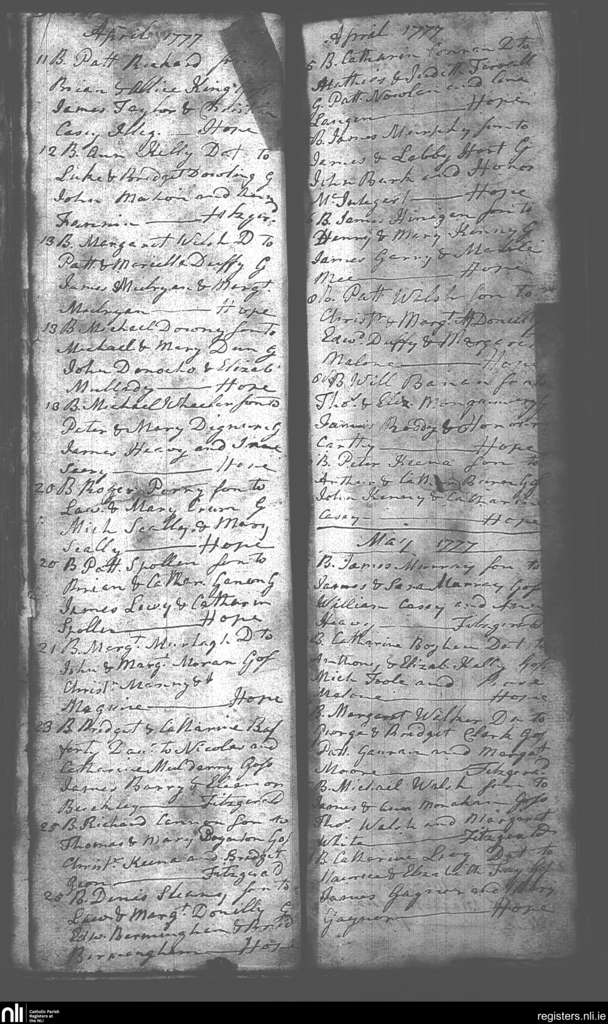 April 1777
11 B. Patt Richard son to
Brian & Allice King
James Taylor & Christian
Casey Illeg. Hope
12 B. Ann Kelly Dat to
Luke & Bridget Dowling G
John Mahon and
Fannin
13 B. Margarat Welsh D to
Patt & Marcella Duffy G
James Mulryan & Margt
Mulryan Hope
13 B. Michael Downy son to
Michael & Mary Dun G
John Donocho & Elizab
Mullady Hope
13 B. Michael Wheeler son to
Peter & Mary Dignin G
James Heavy and
Seery Hope
20 B Roger Perry son to
Law & Mary Crum G
Mich Scally & Mary
Scally Hope
20 B Patt Spollen son to
Brian & Cathar Ganon G
James Levy & Catharin
Spollen Hope
21 B. Margt Murtagh D to
John & Margt Moran Gos
Christ Manny &
Maguire Hope
23 B Bridget & Catharine
Daur to Nicolas and
Catharine Mulderry Goss
James Barry & Eleanor
Buckley Fitzgerd
25 B. Richard Cannon Son to
Thomas & Mary Boynton Gos
Christr Keena and Bridget
Fitzgerd
25 B. Denis son to
& Margt Donelly G
Edw Bermingham & Brid
Bermingham Hope
April 1777
5 B. Catharin Connan D to
Mathias & Judith Farrell
G Patt Nowlan and
Hope
B. James Murphy son to
James & Labby Hart G
John Burk and Honor
Hope
B. James Finegan son to
Henry & Mary Kenny G
James Garry & Matilda
Mee Hope
B. Patt Walsh son to
Christr & Margt McDonell
Edwd Duffy & Margaret
Malone Hope
B Will son to
Thos & Eliz Mongamery
James Reddy & Honour
Cantly Hope
B. Peter Keena son to
Arthur & Cathar Buren Gos
John Kenery & Catharine
Casey Hope
May 1777
B. James Murray son to
James & Sara Murray Gos
William Casey and
Heavy Fitzgerald
B Catharine Boyhan Dat to
Anthony & Elizab Kelly Gos
Mich Toole and Rose
Malone Hope
B. Margaret Walker Da to
George & Bridget Clark Gos
Patt Gaurain and Margat
Moore Fitzgerd
B Michael Walsh son to
James & Ann Monahan Goss
Thos Walsh and Margaret
White Fitzgerd
B Catharine Dat to
Maurice & Elizabeth Fay Gos
James Gaynor and Mary
Gaynor Hope
nli
Catholic Parish
Registers at
the NLI
registers.nli.ie